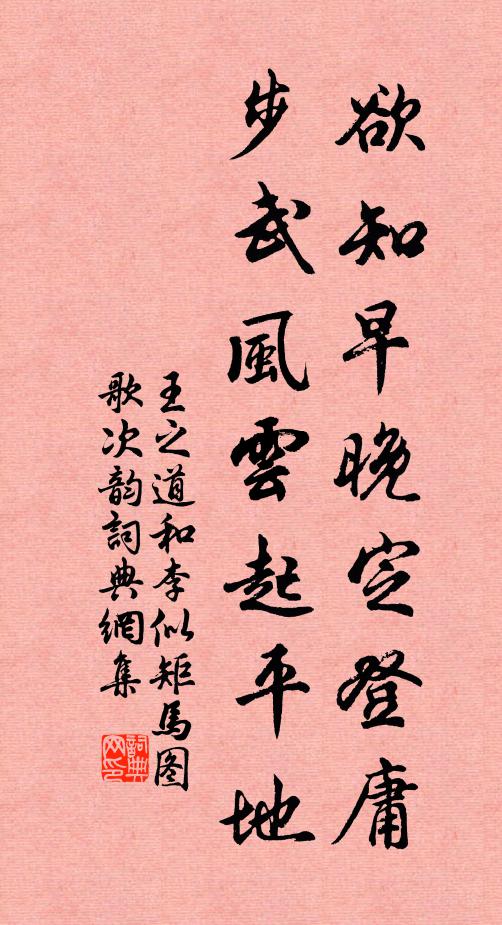 欲知早晚定登庸
步武風雲起平地
王之道和李似矩馬图
歌次韵詞典網集
詞典网印